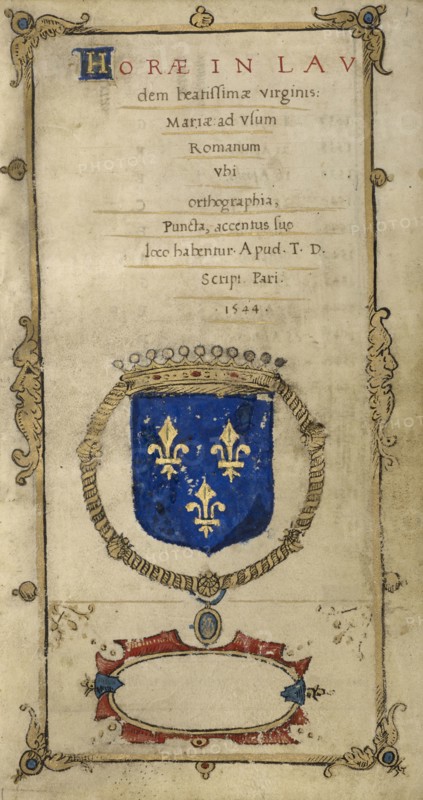 HORÆ IN LAV
dem beatissimæ virginis:
Mariæ ad vsum
Romanum
vbi
orthographia,
Puncta, accentus suo
loco habentur. Apud. T. D.
Script. Pari.
·1544·